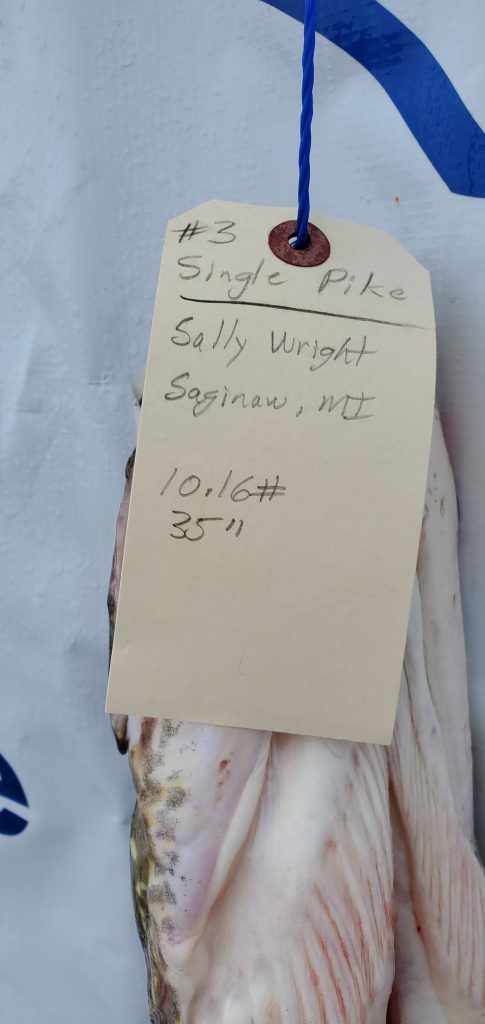 #3
Single Pike
Sally Wright
Saginaw, MI
10.16#
35"